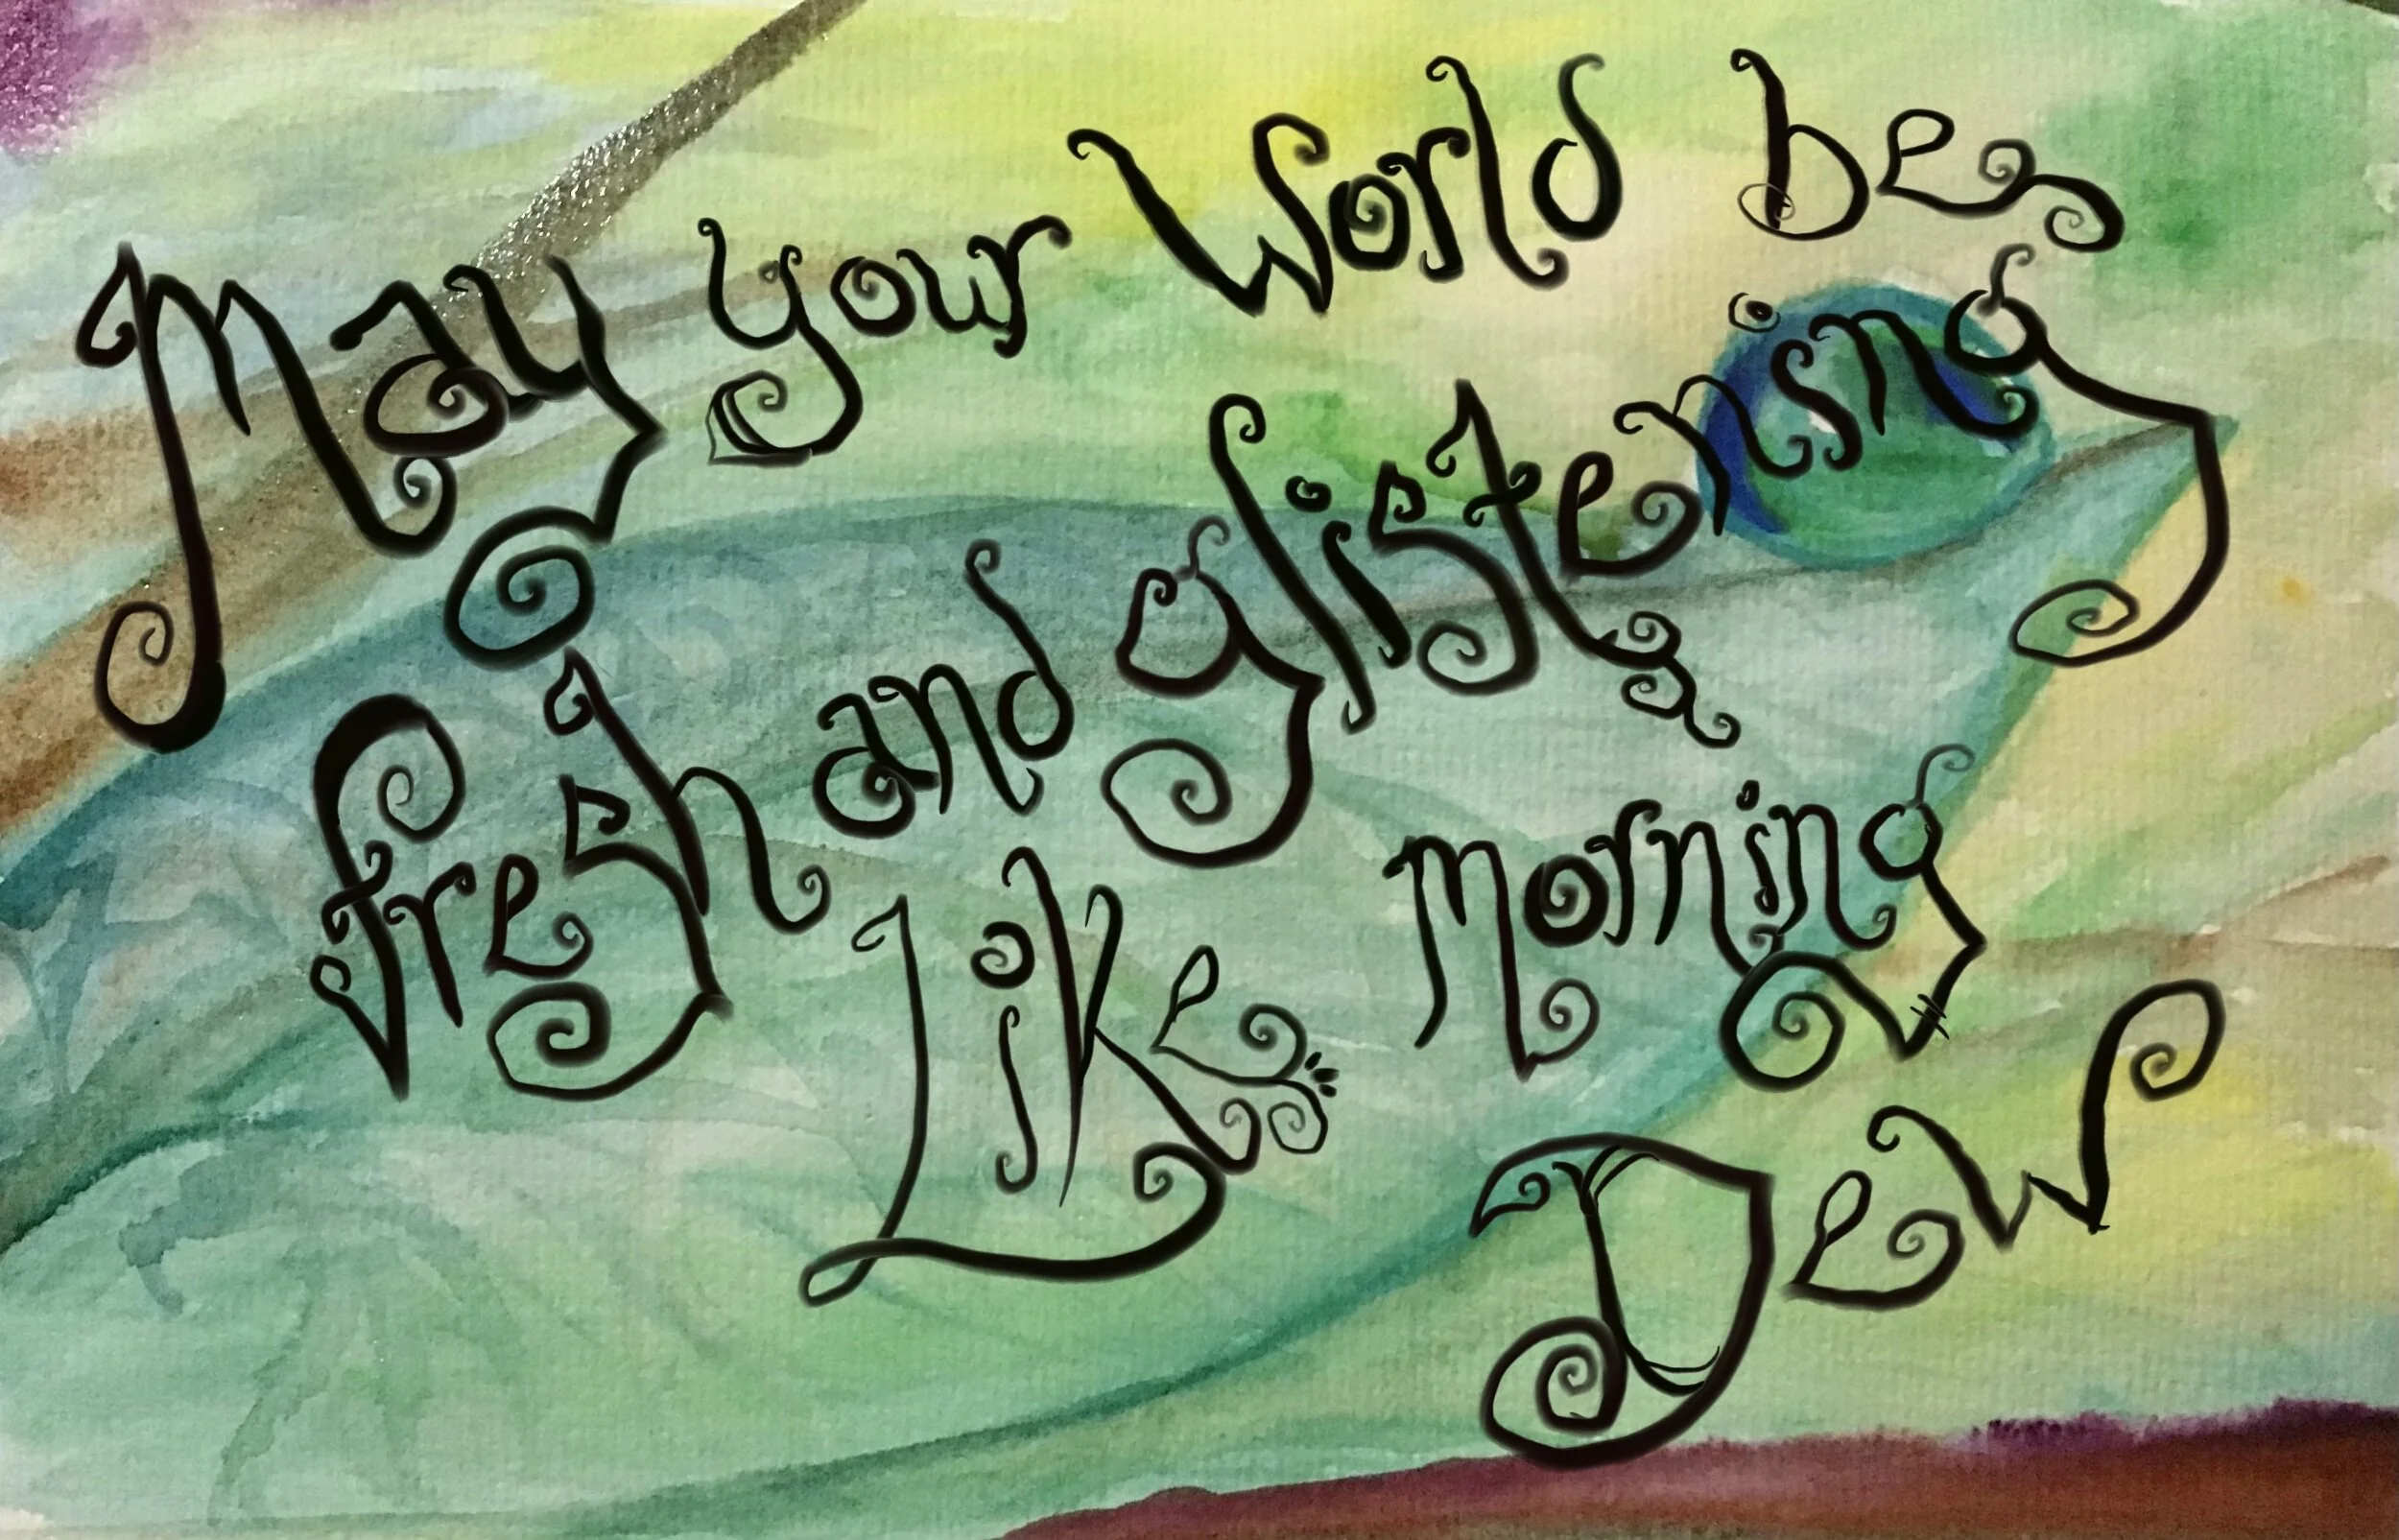 May your World be
fresh and glistening
Like morning
Dew